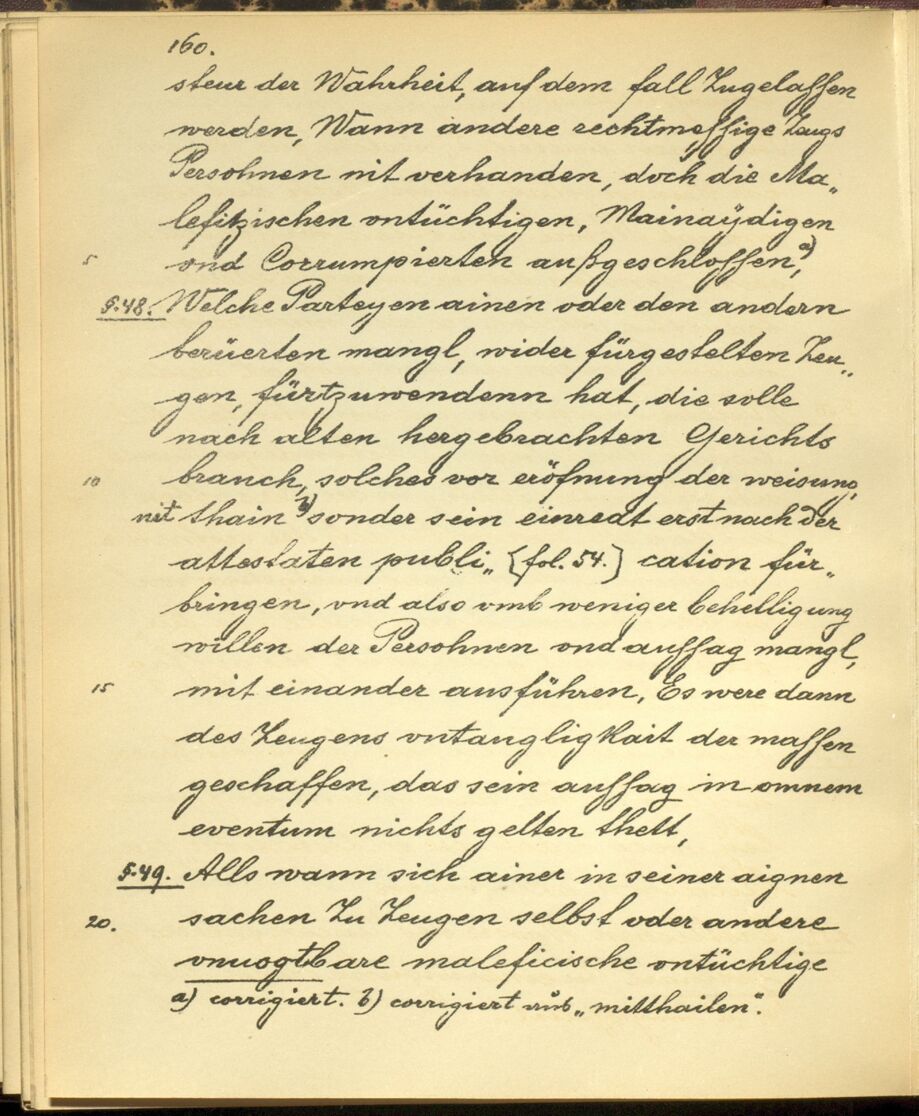 160.
steur der Wahrheit, auf dem fall Zugelassen
werden, Wann andere rechtmessige Zeugs
Persohnen nit verhanden, doch die Ma„
lefitzischen vntüchtigen, Mainaÿdigen
5 vnd Corrumpierten außgeschlossen,a)
§.48. Welche Parteyen ainen oder den andern
berüerten mangl, wider fürgestelten Zeu„
gen, fürtzuwendenn hat, die solle
nach alten hergebrachten Gerichts
10 brauch, solches vor eröfnung der weisung,
nit thain b) sonder sein einredt erst nach der
attestaten publi„ [fol. 54.] cation für„
bringen, vnd also vmb weniger behelligung
willen der Persohnen vnd aussag mangl,
15 mit einander ausführen, Es were dann
des Zeugens vntaugligkait der massen
geschaffen, das sein aussag in omnem
eventum nichts gelten thett,
§.49. Alls wann sich ainer in seiner aignen
20. sachen Zu Zeugen selbst oder andere
vnuogtbare maleficische vntüchtige
a) corrigiert. b) corrigiert aus „mitthailen".